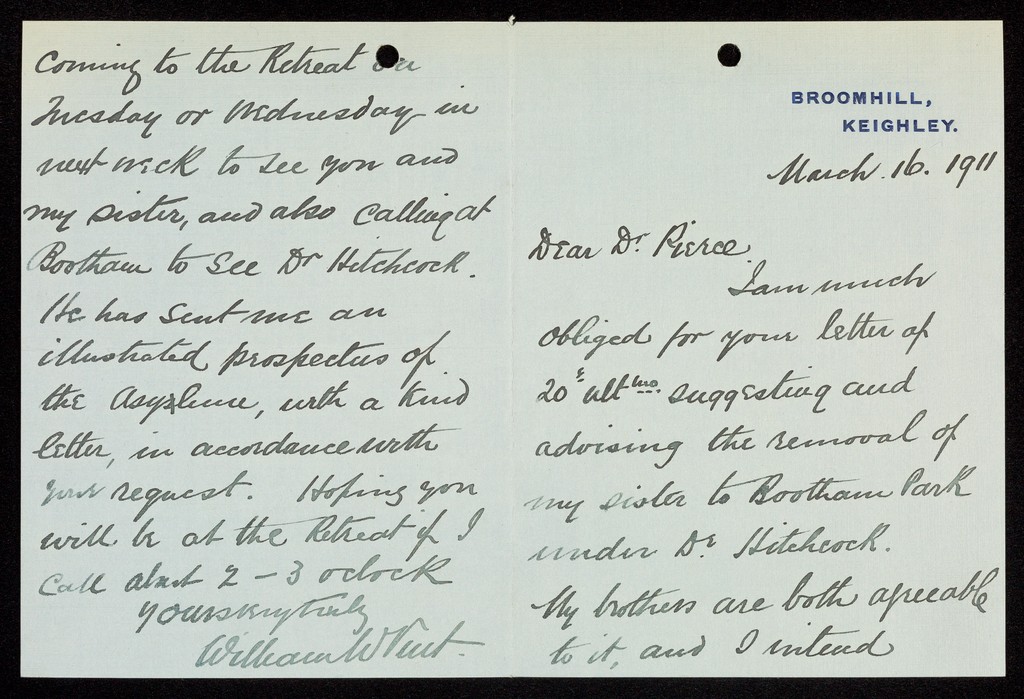 BROOMHILL,
KEIGHLEY.
March. 16. 1911
Dear Dr. Pierce.
I am much
obliged for your letter of
20th ultmo suggesting and
advising the removal of
my sister to Bootham Park
under Dr. Hitchcock.
My brothers are both agreeable
to it, and I intend
Coming to the Retreat on
Tuesday or Wednesday in
next week to see you and
my sister, and also calling at
Bootham to see Dr Hitchcock.
He has sent me an
illustrated prospectus of
the Asylum, with a kind
letter, in accordance with
your request. Hoping you
will be at the Retreat if I
Call about 2 - 3 oclock
Yours very truly
William W